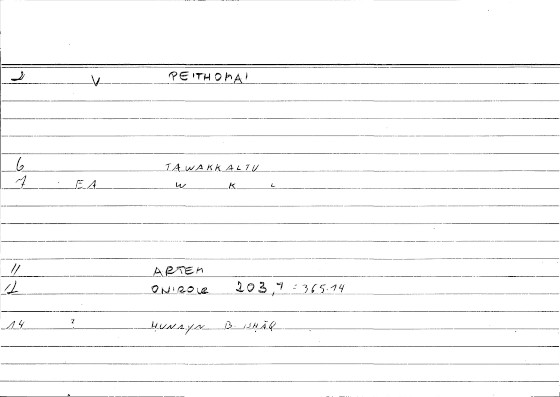 2 V PEITHOMAI
6 TAWAKKALTU
7 EA W K L
11 ARTEM
12 ONIROCR 203,7 = 365.14
14 ? HUNAYN B ISHĀQ